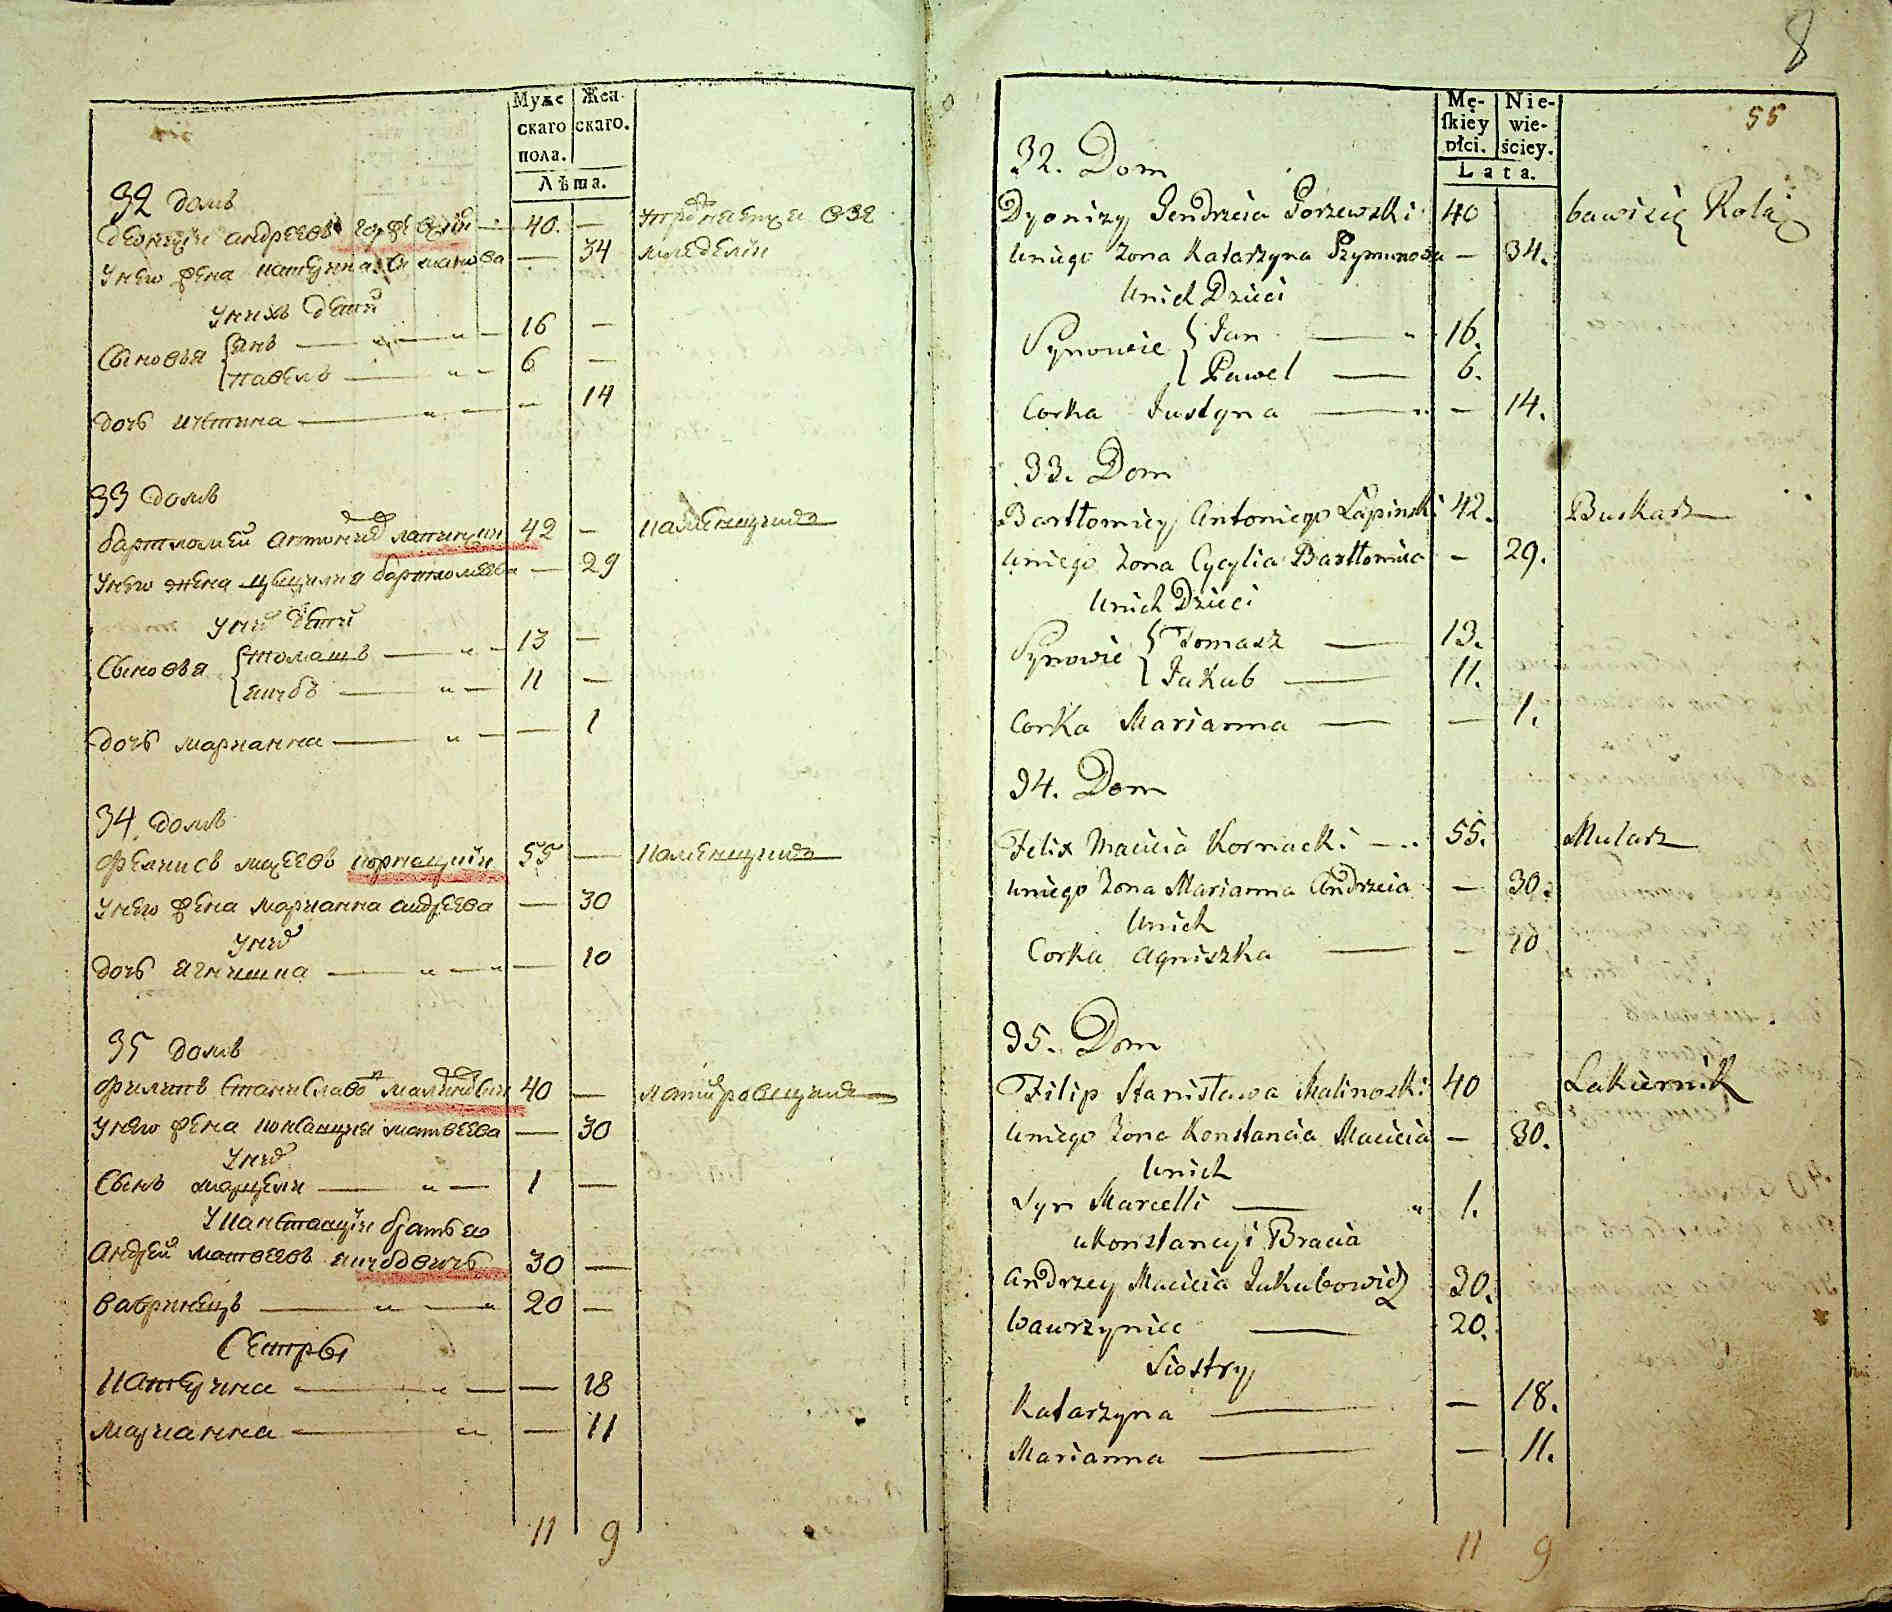 Мужескаго пола. Женскаго.
Лѣта.
32 домъ
40. —
Унего жена — 34
Унихъ дети
Сыновья Янъ — 16 —
Павелъ — 6 —
дочь — 14
33 домъ
Бартломей Антонив Лапинскии 42 — каменщикъ
Унего жена Цецилия Бартломеева — 29
Уних дети
Сыновья Томашъ — 13 —
Якубъ — 11 —
дочь Марианна — 1
34. домъ
Феликсъ Мацеевъ Корнацкiи 55 — Каменщикъ
Унего жена Марианна Андреева — 30
Уних
дочь Агнишка — 10
35 домъ
Филипъ Станиславов Малиновски 40 —
Унего жена Констанция Матвеева — 30
Уних
Сынъ Марцели — 1 —
Уконстанцiи братья
Андрей Матвеевъ Якубовичь 30 —
Вавринецъ — 20 —
Сестры
Катерина — 18
Марианна — 11
11 9
8
55
Mę-ſkiey płci. Nie-wie-ściey.
Lata.
32. Dom
Dyonizy Jendrzeia Gorzewski 40 bawi się Rolą
Uniego Zona Katarzyna Szymonowa — 34.
Unich Dzieci
Synowie { Jan — 16.
Pawel — 6.
Corka Justyna — 14.
33. Dom
Bartłomiey Antoniego Łapinski 42. Buskarz
Uniego Zona Cycylia Bartłomiea — 29.
Unich Dzieci
Synowie { Tomasz — 13.
Jakub — 11.
Corka Marianna — 1.
34. Dom
Felix Macieia Kornacki — 55. Mularz
Uniego Zona Marianna Andrzeia — 30.
Unich
Corka Agniszka — 10
35. Dom
Filip Stanisława Malinoski 40 Lakiernik
Uniego Zona Konstancia Macieia — 30.
Unich
Syn Marcelli — 1.
Ukonstancyi Bracia
Andrzey Macieia Jakubowicz 30.
Wawrzyniec — 20.
Siostry
Katarzyna — 18.
Marianna — 11.
11 9